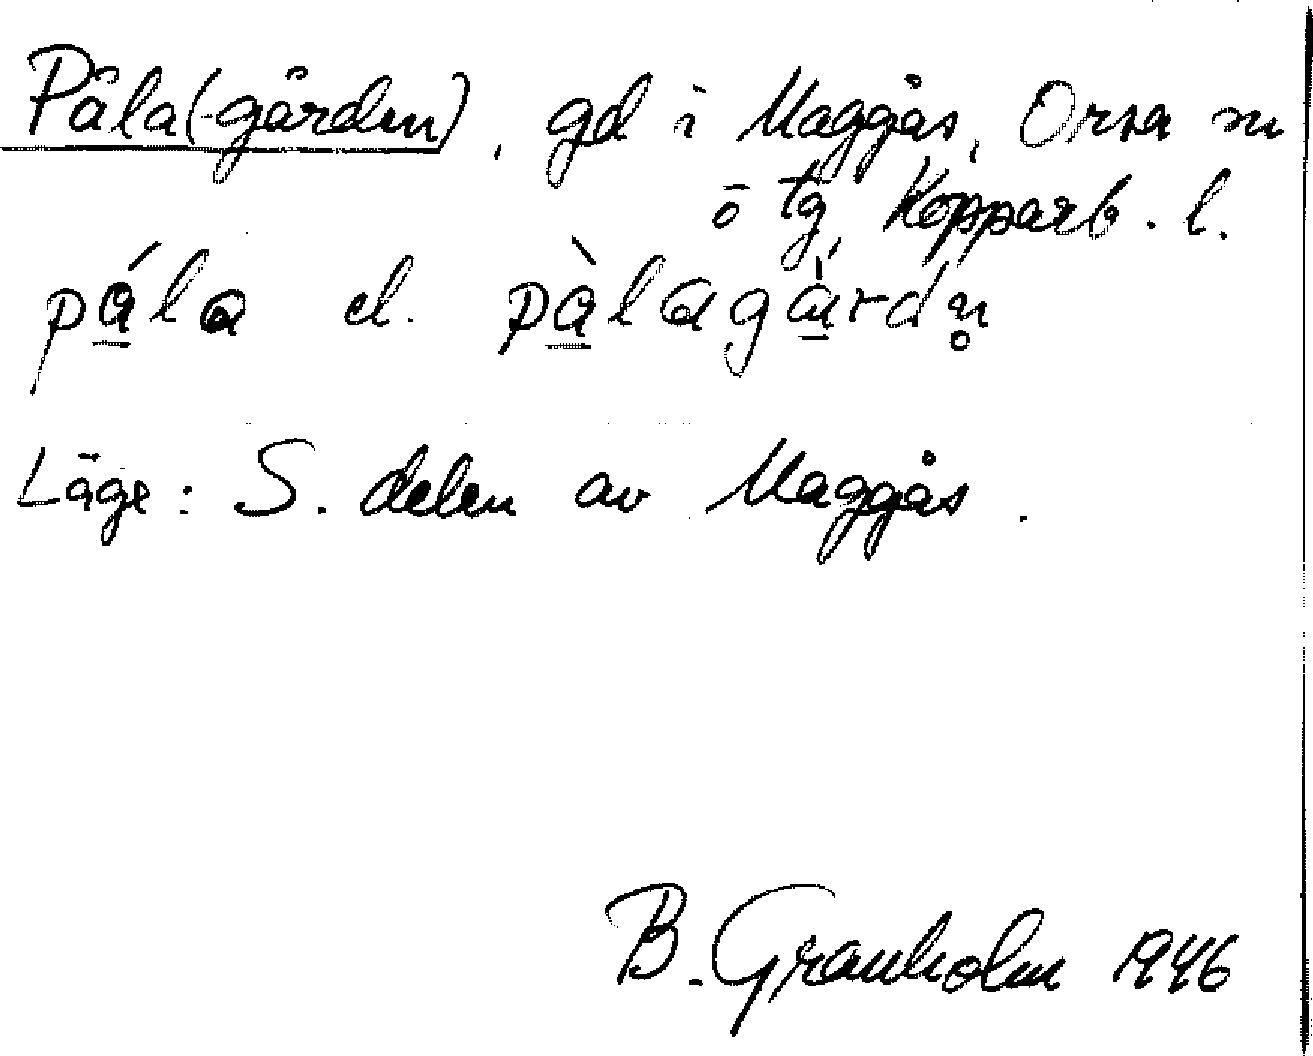 Påla(-gården), gd i Maggås, Orsa sn
ö tg, Kopparb. l.
pála el. pàlagàrdn̥
Läge: S. delen av Maggås.
B. Granholm 1946